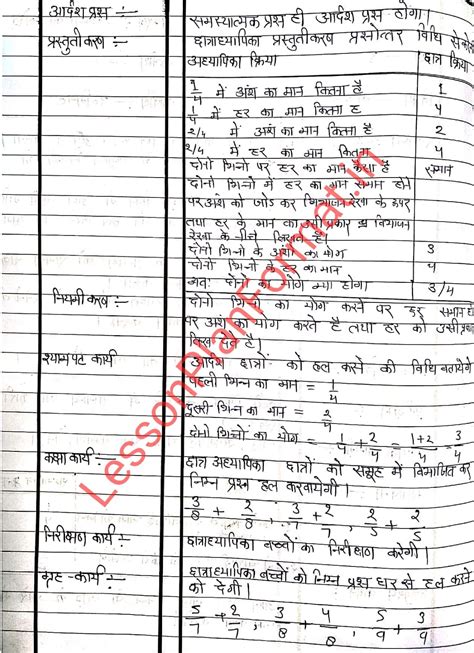 आर्दश प्रश्न :- समस्यात्मक प्रश्न ही आर्दश प्रश्न होगा।
प्रस्तुतीकरण :- छात्राध्यापिका प्रस्तुतीकरण प्रश्नोत्तर विधि से
अध्यापिका क्रिया छात्र क्रिया
1/4 में अंश का मान कितना है 1
1/4 में हर का मान कितना है 4
2/4 में अंश का मान कितना है 2
2/4 में हर का मान कितना 4
दोनो भिन्नो पर हर का मान कैसा है समान
दोनो भिन्नो में हर का मान समान होने
पर अंश को जोड कर विभाजन रेखा के ऊपर
तथा हर के मान का उसी प्रकार विभाजन
रेखा के नीचे लिखते है।
दोनो भिन्नो के अंशो का योग 3
दोनो भिन्नो के हर का मान 4
अतः दोनो का योग क्या होगा 3/4
नियमीकरण :- दोनो भिन्नो का योग करने पर हर समान हो
पर अंश का योग करते है तथा हर को उसी प्रकार
लिख देते है।
श्यामपट कार्य आर्दश छात्रों को हल करने की विधि बतायेगे
पहली भिन्न का मान = 1/4
दूसरी भिन्न का मान = 2/4
दोनो भिन्नो का योग = 1/4 + 2/4 = 1+2/4 = 3/4
कक्षा कार्य :- छात्र अध्यापिका छात्रों को समूह में विभाजित कर
निम्न प्रश्न हल करवायेगी।
3/8 + 2/8 , 3/7 + 2/7 , 2/5 + 2/5
निरीक्षण कार्य :- छात्राध्यापिका बच्चों का निरीक्षण करेगी।
गृह-कार्य :- छात्राध्यापिका बच्चों को निम्न प्रश्न घर से हल करने
को देगी।
5/7 + 2/7 , 3/8 + 4/8 , 5/9 + 3/9
LessonPlanFormat.in